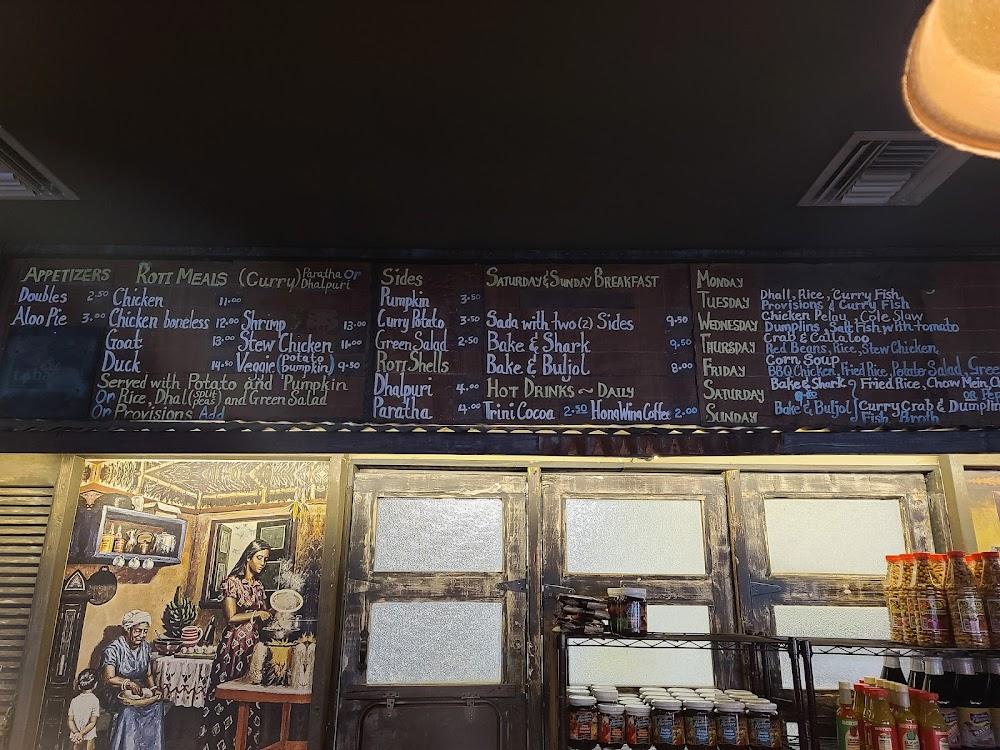 APPETIZERS
Doubles 2.50
Aloo Pie 3.00
ROTI MEALS (Curry) Paratha Or Dhalpuri
Chicken 11.00
Chicken boneless 12.00 Shrimp 13.00
Goat 13.00 Stew Chicken 11.00
Duck 14.50 Veggie (Potato pumpkin) 9.50
Served with Potato and Pumpkin
Or Rice, Dhal (split peas) and Green Salad
Or Provisions Add
Sides
Pumpkin 3.50
Curry Potato 3.50
Green Salad 2.50
ROTI SHELLS
Dhalpuri 4.00
Paratha 4.00
SATURDAY & SUNDAY BREAKFAST
Sada with two (2) Sides 9.50
Bake & Shark 9.50
Bake & Buljol 8.00
HOT DRINKS ~ DAILY
Trini Cocoa 2.50 Hong Wing Coffee 2.00
MONDAY
TUESDAY Dhall, Rice, Curry Fish
Provisions & Curry Fish
WEDNESDAY Chicken Pelau, Cole Slaw
Dumplins, Salt Fish with tomato
THURSDAY Crab & Callaloo
Red Beans, Rice, Stew Chicken
FRIDAY Corn Soup
BBQ Chicken, Fried Rice, Potato Salad, Gree
SATURDAY Bake & Shark Fried Rice, Chow Mein, C
SUNDAY Bake & Buljol (Curry Crab & Dumplin
& Fish Broth